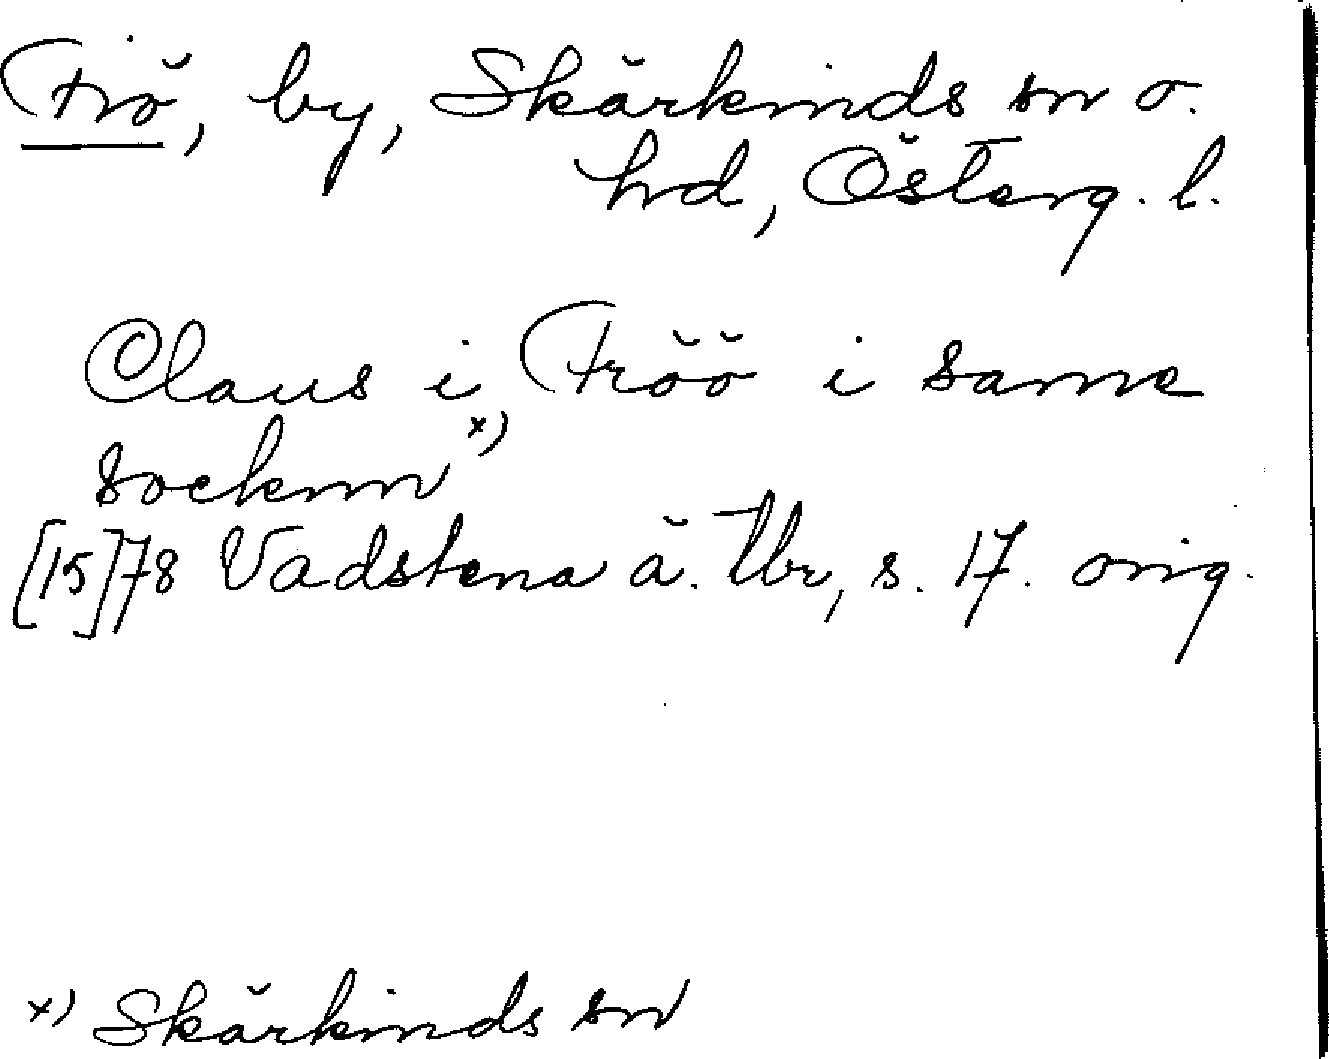 Frö, by, Skärkinds sn o.
hd, Österg. l.
Claus i Fröö i same
socknn x)
[15]78 Vadstena ä. tbr, s. 17. orig.
x) Skärkinds sn